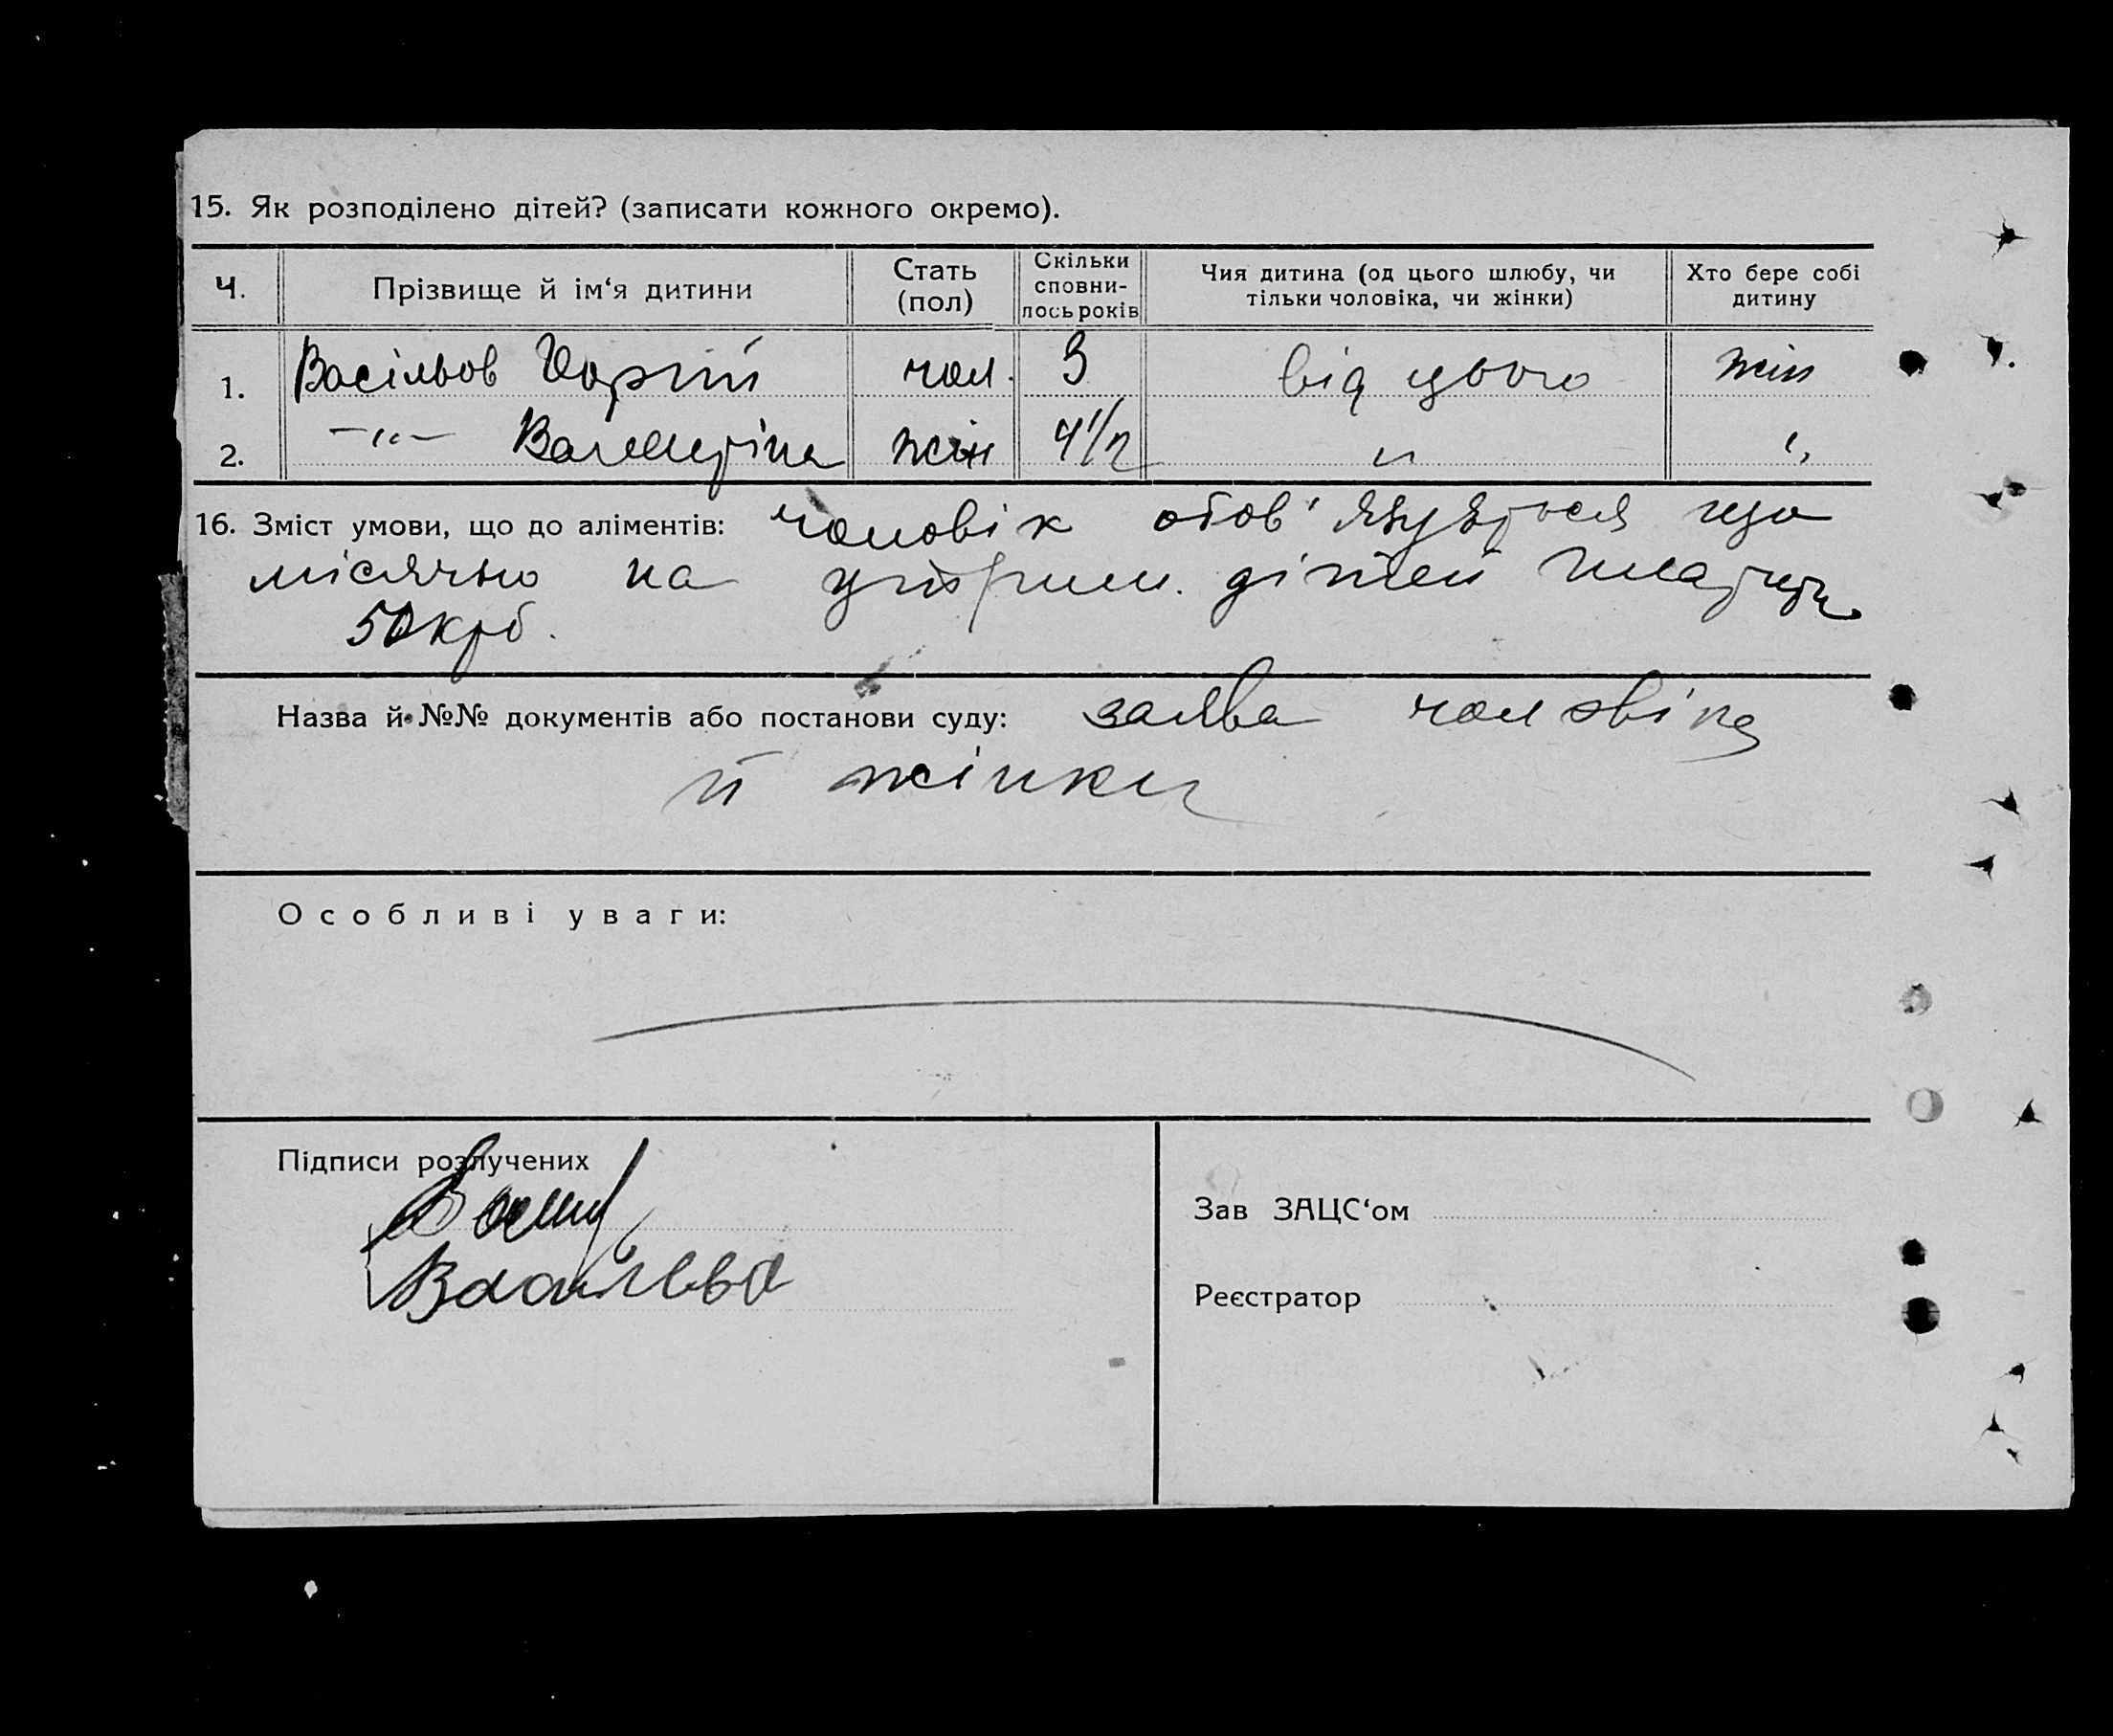 15. Як розподілено дітей? (записати кожного окремо).
Ч. Прізвище й ім‘я дитини Стать (пол) Скільки сповнилось років Чия дитина (од цього шлюбу, чи тільки чоловіка, чи жінки) Хто бере собі дитину
1. Васільов Юрій чол. 9 від цього жін
2. —"— Валентіна жін 4 1/2 " "
16. Зміст умови, що до аліментів: чоловік обов'язується що
місячно на утрим. дітей платити
50 крб.
Назва й №№ документів або постанови суду: заява чоловіка
й жінки
Особливі уваги:
Підписи розлучених
Васильєва
Зав ЗАЦС‘ом
Реєстратор